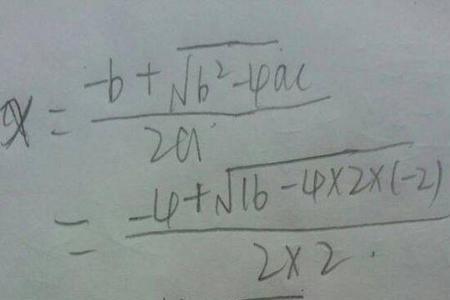 x = (-b + √(b² - 4ac)) / (2a)
= (-4 + √(16 - 4×2×(-2))) / (2×2)